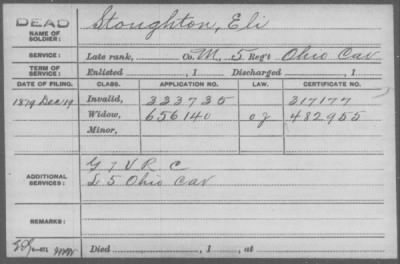 DEAD
NAME OF SOLDIER: Stoughton, Eli
SERVICE: Late rank, Co. M, 5 Reg't Ohio Cav
TERM OF SERVICE: Enlisted , 1 Discharged , 1
DATE OF FILING. CLASS. APPLICATION NO. LAW. CERTIFICATE NO.
1879 Dec 19 Invalid, 323735 217177
Widow, 656140 of 482955
Minor,
ADDITIONAL SERVICES: G 7 V R C
L 5 Ohio Cav
REMARKS:
Died , 1 , at